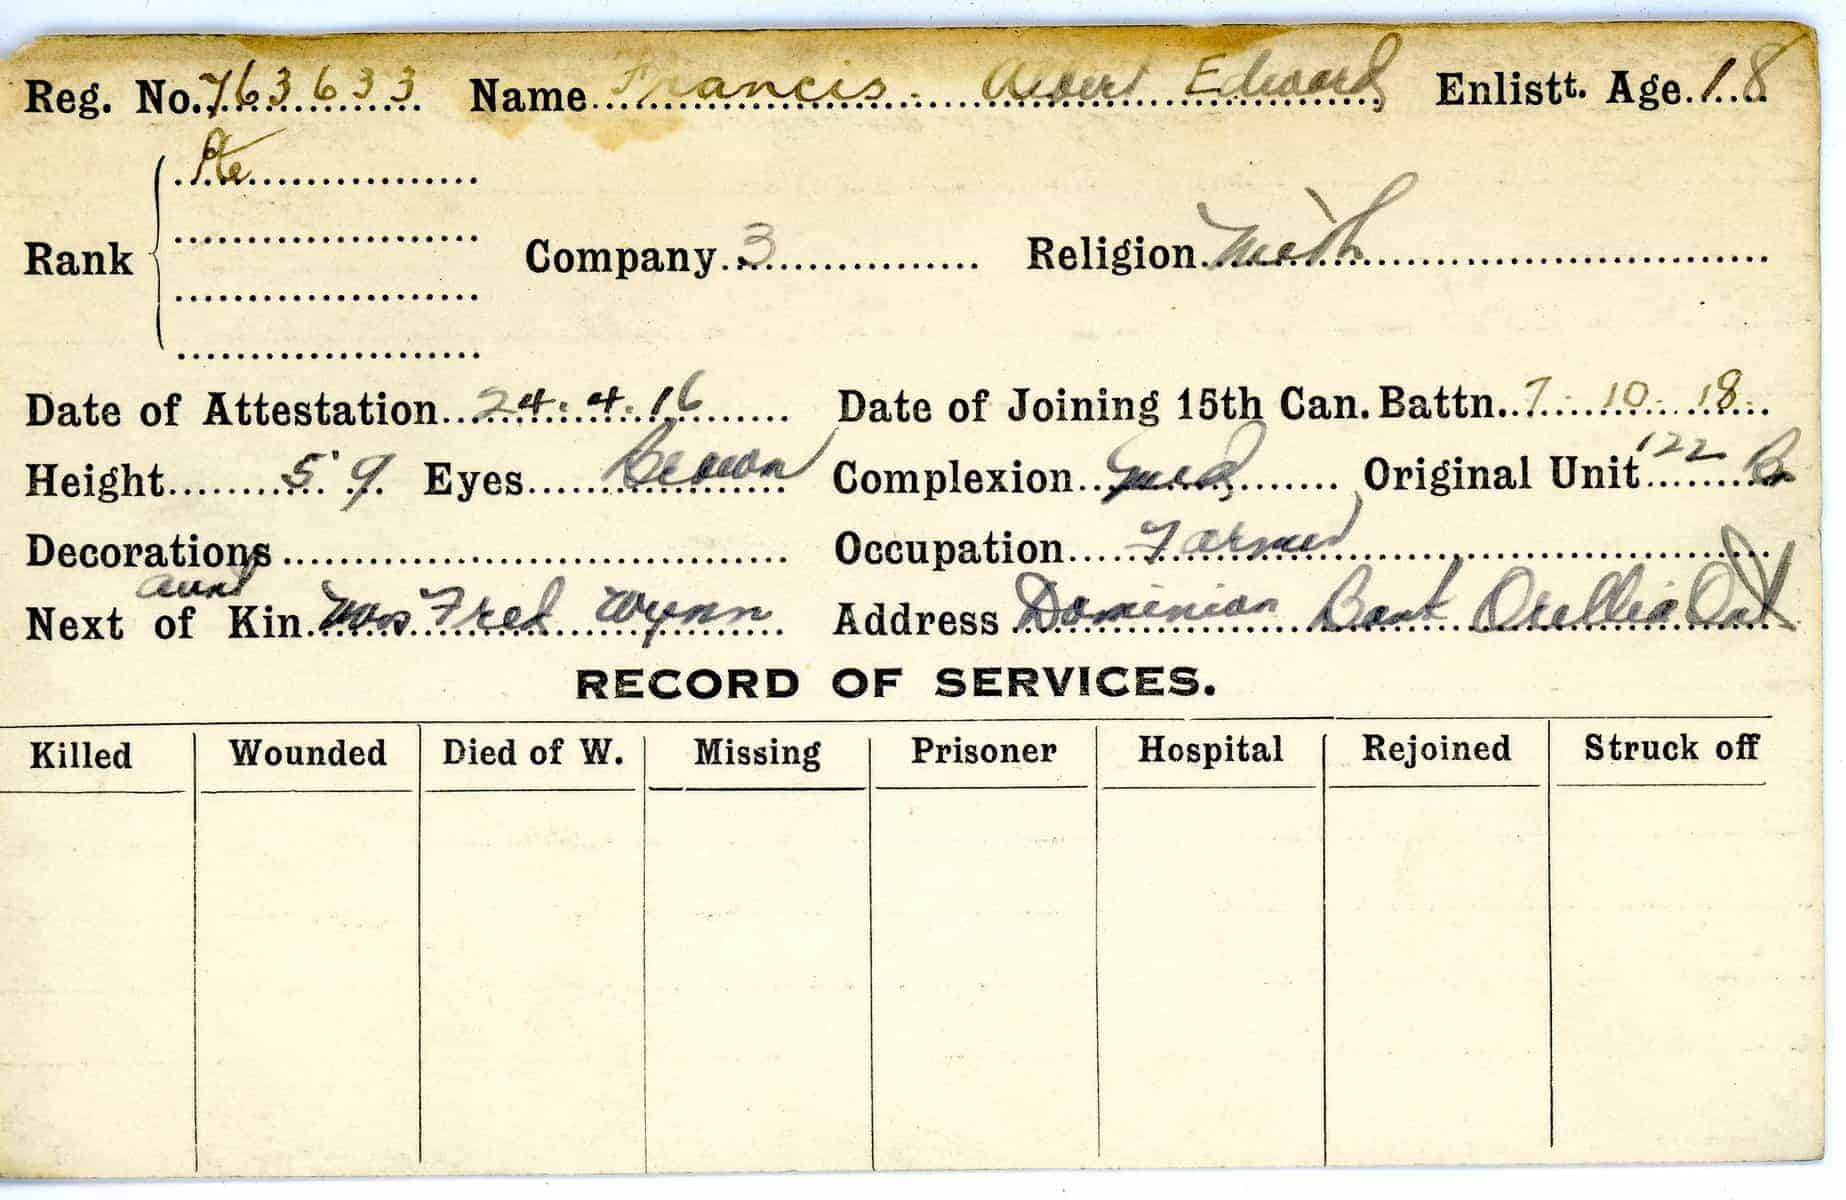 Reg. No. 763633 Name Francis. Albert Edward Enlistt. Age. 18
Pte
Rank Company 3 Religion Meth
Date of Attestation 24.4.16 Date of Joining 15th Can. Battn. 7.10.18.
Height 5'9 Eyes Brown Complexion Med Original Unit 122 Bn
Decorations Occupation Farmer
aunt
Next of Kin. Mrs Fred Wynn Address Dominion Bank Orillia Ont
RECORD OF SERVICES.
Killed Wounded Died of W. Missing Prisoner Hospital Rejoined Struck off